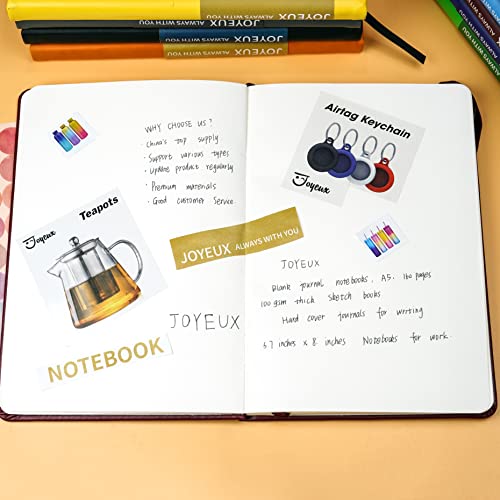 JOYEUX ALWAYS WITH YOU
JOYEUX ALWAYS WITH YOU
JOYEUX ALWAYS WITH YOU
WHY CHOOSE US?
· China's top supply
· Support various types
· Update product regularly
· Premium materials
· Good customer Service.
Joyeux
Teapots
JOYEUX ALWAYS WITH YOU
JOYEUX
NOTEBOOK
Airtag Keychain
Joyeux
JOYEUX
Blank journal notebooks, A5, 160 pages
100 gsm thick sketch books
Hard cover journals for writing
5.7 inches x 8. inches Notebooks for work.